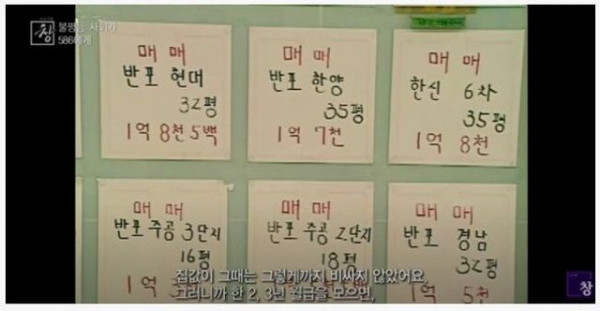 창
불평등 사회가
586에게
매 매
반포 현대
32평
1억 8천 5백
매 매
반포 한양
35평
1억 7천
매 매
한신 6차
35평
1억 8천
매 매
반포 주공 3단지
16평
1억
매 매
반포 주공 2단지
18평
매 매
반포 경남
32평
1억 5천
집값이 그때는 그렇게까지 비싸지 않았어요
그러니까 한 2, 3년 월급을 모으면,
창